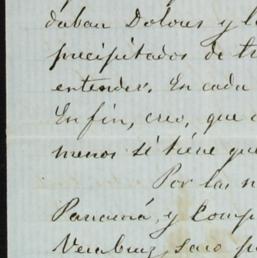 daban Dolores y l
precipitados de t
entender. En cada
En fin, creo, que
menos si tiene que
Por las n
Panamá, y Comp
Veracruz, saco p